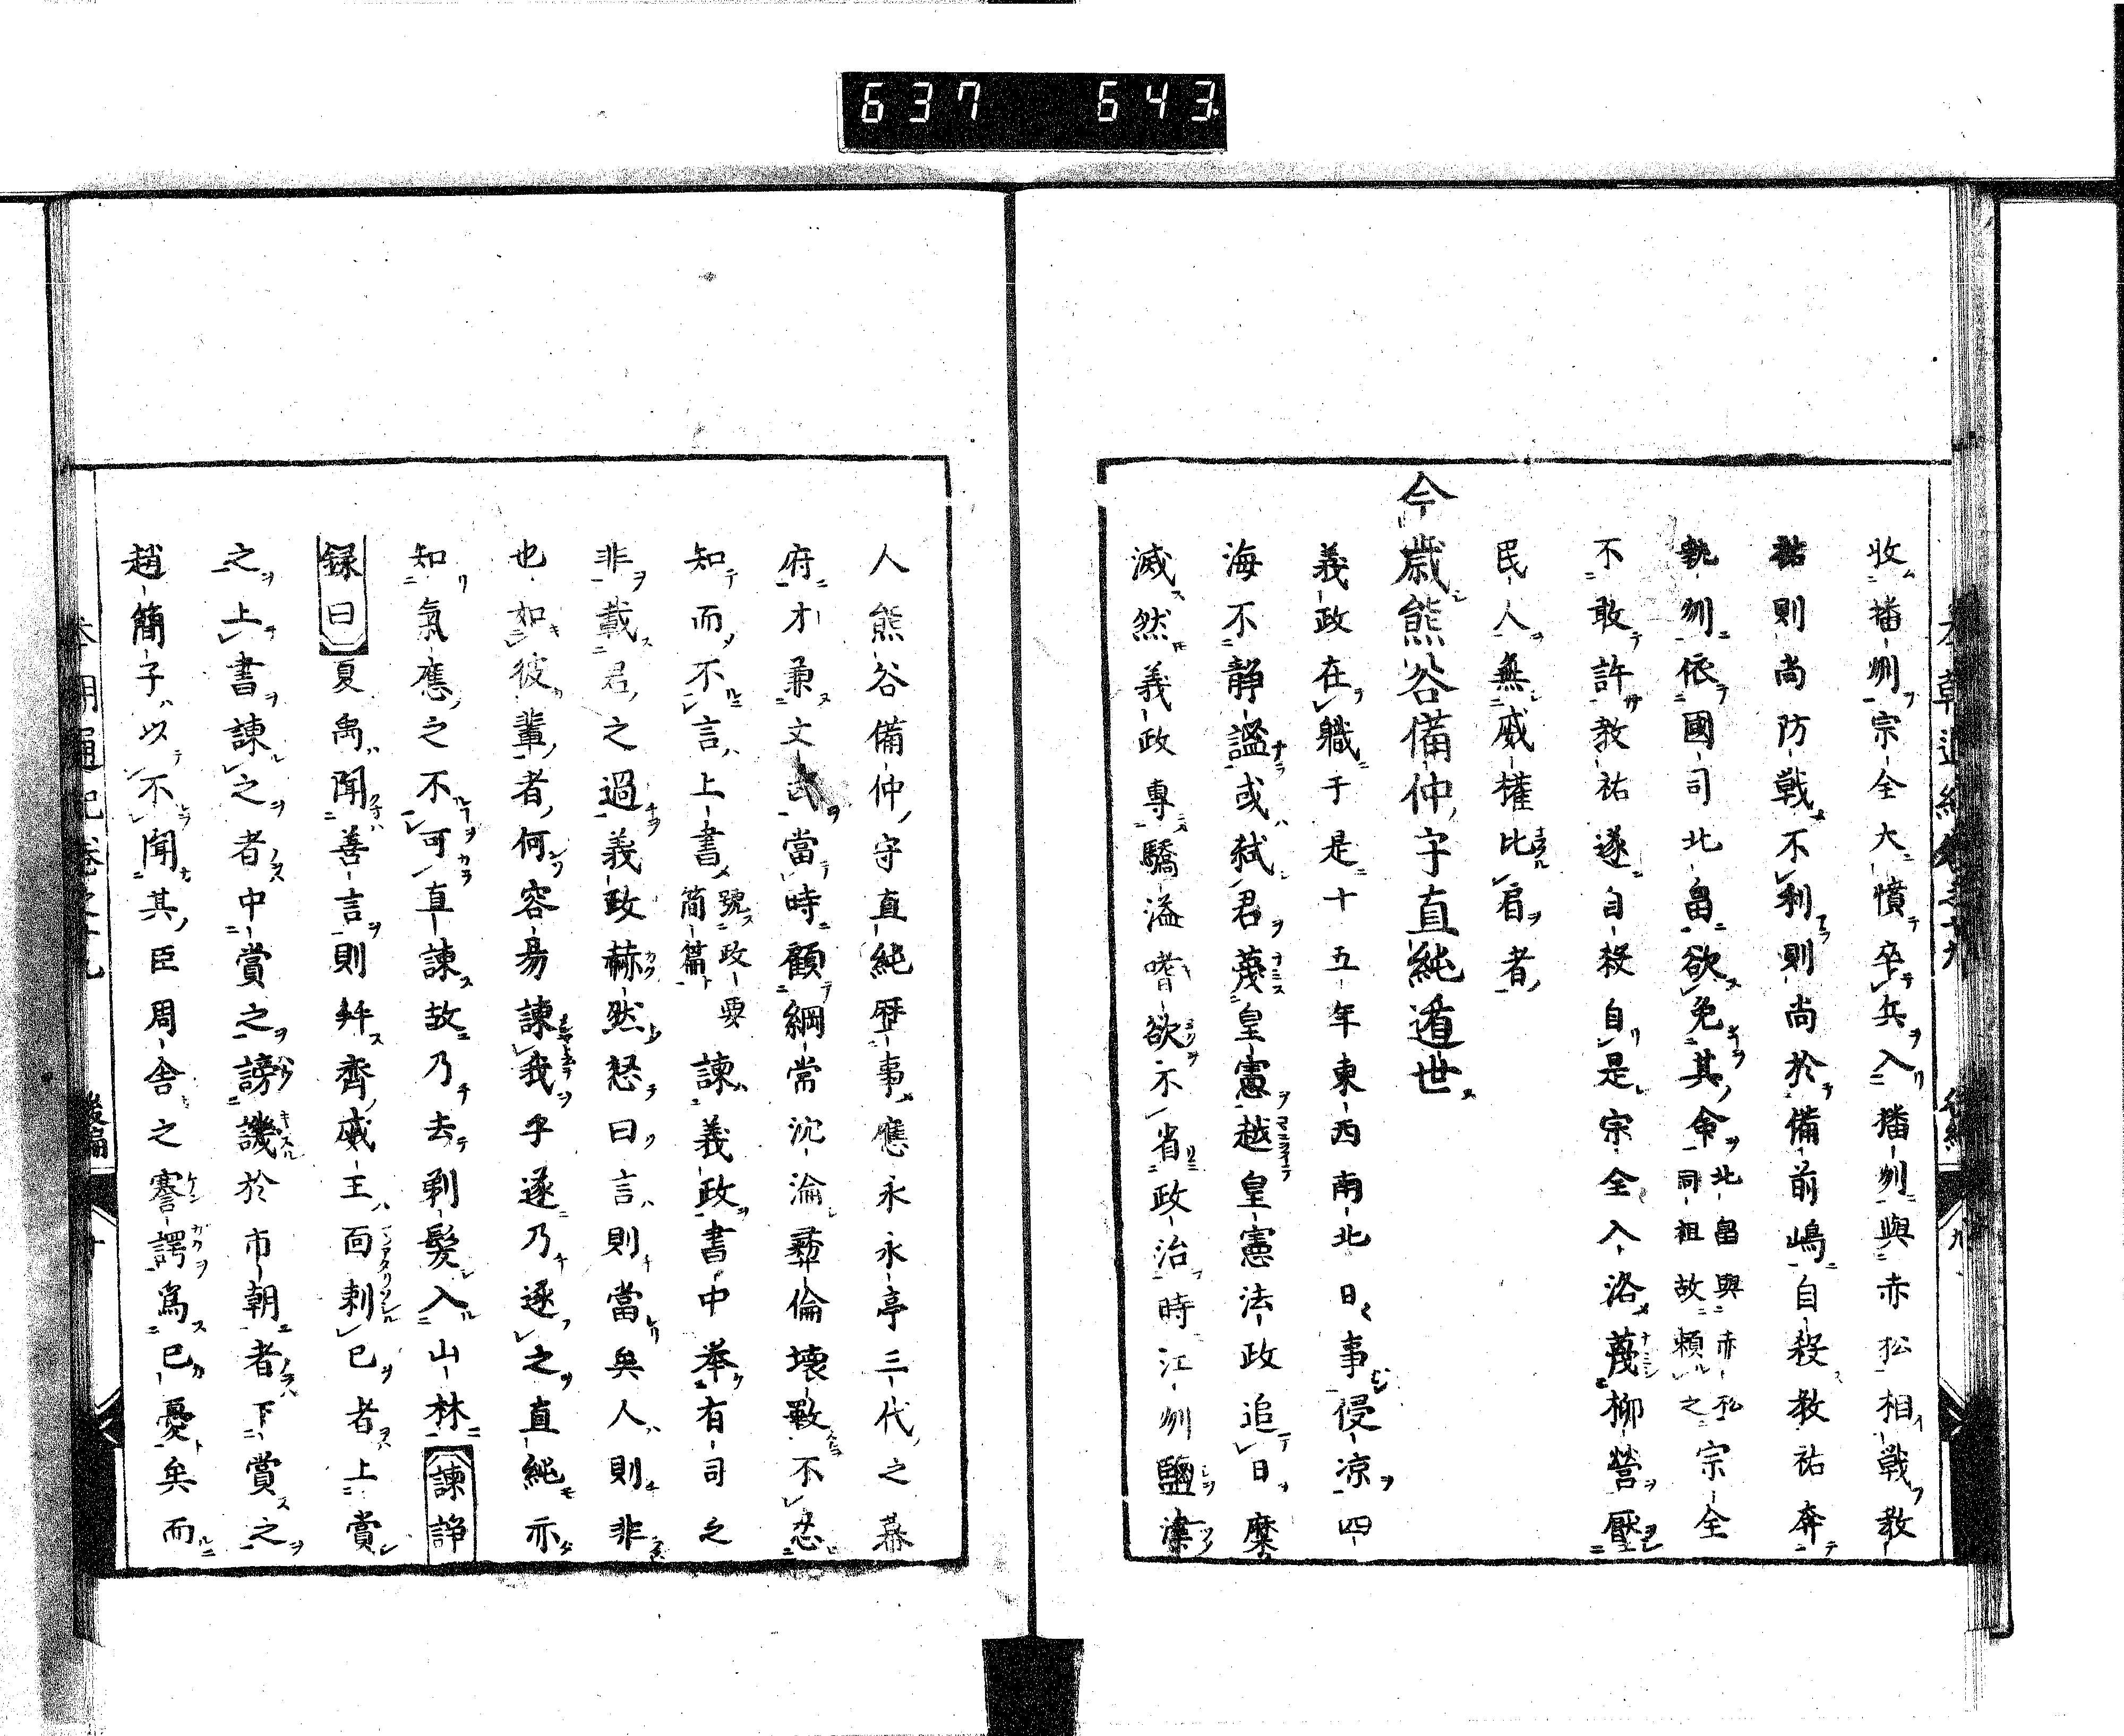 637 643
收播州宗全大憤卒兵入播州與赤松相戰教
祐則尚防戰不利則尚於備前嶋自殺教祐奔
勢州依國司北畠欲免其命北畠與赤松同祖故頼之宗全
不敢許教祐遂自殺自是宗全入洛蔑柳營壓
民人無威權比肩者
今歲熊谷備仲守直純遁世
義政在職于是十五年東西南北日〻事侵凉四
海不靜謐或弑君蔑皇憲越皇憲法政追日糜
滅然義政專驕溢嗜欲不省政治時江州鹽津
人熊谷備仲守直純歷事應永永亭三代之幕
府才兼文武當時顧綱常沈淪彝倫壞斁不忍
知而不言上書號政要簡篇諫義政書中举有司之
非載君之過義政赫然怒曰言則當矣人則非
也如彼輩者何容易諫我乎遂乃逐之直純示
知氣應之不可直諫故乃去剃髮入山林諫諍
録曰夏禹聞善言則拜齊威王面刺已者上賞
之上書諫之者中賞之謗譏於市朝者下賞之
趙簡子以不聞其臣周舍之謇諤爲已憂矣而
本朝通紀卷之十九 後編 十